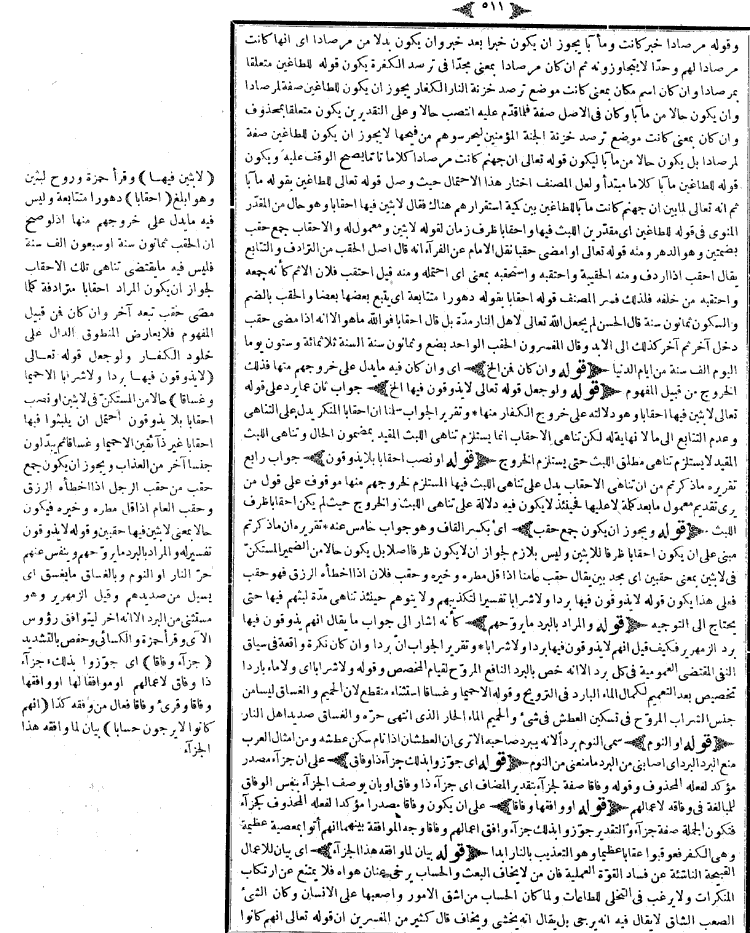 ٥١١
وقوله مرصادا خبر كانت ومآبا يجوز ان يكون خبرا بعد خبر وان يكون بدلا من مرصادا اى انها كانت
مرصادا لهم وحدّا لايتجاوزونه ثم ان كان مرصادا بمعنى مجدّا فى ترسد الكفرة يكون قوله للطاغين متعلقا
بمرصادا وان كان اسم مكان بمعنى كانت موضع ترصد خزنة النار الكفار يجوز ان يكون للطاغين صفة لمرصادا
وان يكون حالا من مآبا وكان فى الاصل صفة فلما قدم عليه انتصب حالا وعلى التقديرين يكون متعلقا بمحذوف
وان كان بمعنى كانت موضع ترصد خزنة الجنة المؤمنين ليحرسوهم من فيحها لايجوز ان يكون للطاغين صفة
لمرصادا بل يكون حالا من مآبا ليكون قوله تعالى ان جهنم كانت مرصادا كلاما تاما يصح الوقف عليه ويكون
قوله للطاغين مآبا كلاما مبتدأ ولعل المصنف اختار هذا الاحتمال حيث وصل قوله تعالى للطاغين بقوله مآبا
ثم انه تعالى لما بين ان جهنم كانت مآبا للطاغين بين كمية استقرارهم هناك فقال لابثين فيها احقابا وهو حال من المقدّر
المنوى فى قوله للطاغين اى مقدّرين اللبث فيها واحقابا ظرف زمان لقوله لابثين ومعمول له والاحقاب جمع حقب
بضمتين وهو الدهر ومنه قوله تعالى او امضى حقبا نقل الامام عن الفرآء انه قال اصل الحقب من الترادف والتتابع
يقال احقب اذا اردف ومنه الحقيبة واحتقبه واستحقبه بمعنى اى احتمله ومنه قيل احتقب فلان الاثم كأنه جمعه
واحتقبه من خلفه فلذلك فسر المصنف قوله احقابا بقوله دهورا متتابعة اى يتبع بعضها بعضا والحقب بالضم
والسكون ثمانون سنة قال الحسن لم يجعل الله تعالى لاهل النار مدّة بل قال احقابا فوالله ماهو الا انه اذا مضى حقب
دخل آخر ثم آخر كذلك الى الابد وقال المفسرون الحقب الواحد بضع وثمانون سنة السنة ثلاثمائة وستون يوما
اليوم الف سنة من ايام الدنيا ﴿قوله وان كان فمن الخ﴾ اى وان كان فيه مايدل على خروجهم منها فذلك
الخروج من قبيل المفهوم ﴿قوله ولو جعل قوله تعالى لايذوقون فيها الخ﴾ جواب ثان عما يرد على قوله
تعالى لابثين فيها احقابا وهو دلالته على خروج الكفار منها * وتقرير الجواب سلمنا ان احقابا المنكر يدل على التناهى
وعدم التتابع الى ما لا نهاية له لكن تناهى الاحقاب انما يستلزم تناهى اللبث المقيد بمضمون الحال وتناهى اللبث
المقيد لايستلزم تناهى مطلق اللبث حتى يستلزم الخروج ﴿قوله او نصب احقابا بلايذوقون﴾ جواب رابع
تقريره ماذكرتم من ان تناهى الاحقاب يدل على تناهى اللبث فيها المستلزم لخروجهم منها موقوف على قول من
يرى تقديم معمول مابعد كلمة لا عليها فحينئذ لايكون فيه دلالة على تناهى اللبث والخروج حيث لم يكن احقابا ظرف
اللبث ﴿قوله ويجوز ان يكون جمع حقب﴾ اى بكسر القاف وهو جواب خامس عنه * تقريره ان ماذكرتم
مبنى على ان يكون احقابا ظرفا للابثين وليس بلازم لجواز ان لايكون ظرفا اصلا بل يكون حالا من الضمير المستكنّ
فى لابثين بمعنى حقبين اى مجد بين يقال حقب عامنا اذا قل مطره وخيره وحقب فلان اذا اخطأه الرزق فهو حقب
فعلى هذا يكون قوله لايذوقون فيها بردا ولاشرابا تفسيرا لتكذيبهم ولايتوهم حينئذ تناهى مدّة لبثهم فيها حتى
يحتاج الى التوجيه ﴿قوله والمراد بالبرد مايروّحهم﴾ كأنه اشار الى جواب مايقال انهم يذوقون فيها
برد الزمهرير فكيف قيل انهم لايذوقون فيها بردا ولاشرابا * وتقرير الجواب انّ بردا وان كان نكرة واقعة فى سياق
النفى المقتضى العمومية فى كل برد الا انه خص بالبرد النافع المروّح لقيام المخصص وقوله ولاشرابا اى ولاماء باردا
تخصيص بعد التعميم لكمال الماء البارد فى الترويح وقوله الا حميما وغساقا استثناء منقطع لان الحميم والغساق ليسا من
جنس الشراب المروّح فى تسكين العطش فى شئ والحميم الماء الحار الذى انتهى حرّه والغساق صديد اهل النار
﴿قوله او النوم﴾ سمى النوم بردا لانه يبرد صاحبه الاترى ان العطشان اذا نام سكن عطشه ومن امثال العرب
منع البرد البرد اى اصابنى من البرد مامنعنى من النوم ﴿قوله اى جوّزوا بذلك جزآء ذا وفاق﴾ على ان جزآء مصدر
مؤكد لفعله المحذوف وقوله وفاقا صفة لجزآء بتقدير المضاف اى جزآء ذا وفاق او بان يوصف الجزآء بنفس الوفاق
للمبالغة فى وفاقه لاعمالهم ﴿قوله او وافقها وفاقا﴾ على ان يكون وفاقا مصدرا مؤكدا لفعله المحذوف كجزآء
فتكون الجملة صفة جزآء والتقدير جوّزوا بذلك جزآء وافق اعمالهم وفاقا وجه الموافقة بينهما انهم أتوا بمعصية عظيمة
وهى الكفر فعوقبوا عقابا عظيما وهو التعذيب بالنار ابدا ﴿قوله بيان لما وافقه هذا الجزآء﴾ اى بيان للاعمال
القبيحة الناشئة عن فساد القوّة العملية فان من لايخاف البعث والحساب يرخى عنان هواه فلا يمتنع عن ارتكاب
المنكرات ولايرغب فى التحلى للطاعات ولما كان الحساب من اشق الامور واصعبها على الانسان وكان الشئ
الصعب الشاق لايقال فيه انه يرجى بل يقال انه يخشى ويخاف قال كثير من المفسرين ان قوله تعالى انهم كانوا
(لابثين فيها) وقرأ حمزة وروح لبثين
وهو ابلغ (احقابا) دهورا متتابعة وليس
فيه مايدل على خروجهم منها اذ لوصح
ان الحقب ثمانون سنة او سبعون الف سنة
فليس فيه مايقتضى تناهى تلك الاحقاب
لجواز ان يكون المراد احقابا مترادفة كلما
مضى حقب تبعه آخر وان كان فمن قبيل
المفهوم فلايعارض المنطوق الدال على
خلود الكفار ولو جعل قوله تعالى
(لايذوقون فيها بردا ولاشرابا الا حميما
وغساقا) حالا من المستكنّ فى لابثين او نصب
احقابا بلايذوقون احتمل ان يلبثوا فيها
احقابا غير ذآئقين الا حميما وغساقا ثم يبدّلون
جنسا آخر من العذاب ويجوز ان يكون جمع
حقب من حقب الرجل اذا اخطأه الرزق
وحقب العام اذا قل مطره وخيره فيكون
حالا بمعنى لابثين فيها حقبين وقوله لايذوقون
تفسير له والمراد بالبرد مايروّحهم وينفس عنهم
حرّ النار او النوم وبالغساق مايغسق اى
يسيل من صديدهم وقيل الزمهرير وهو
مستثنى من البرد الا انه اخر ليتوافق رؤوس
الآى وقرأ حمزة والكسائى وحفص بالتشديد
(جزآء وفاقا) اى جوّزوا بذلك جزآء
ذا وفاق لاعمالهم او موافقا لها او وافقها
وفاقا وقرئ وفاقا فعال من وفقه كذا (انهم
كانوا لايرجون حسابا) بيان لما وافقه هذا
الجزآء